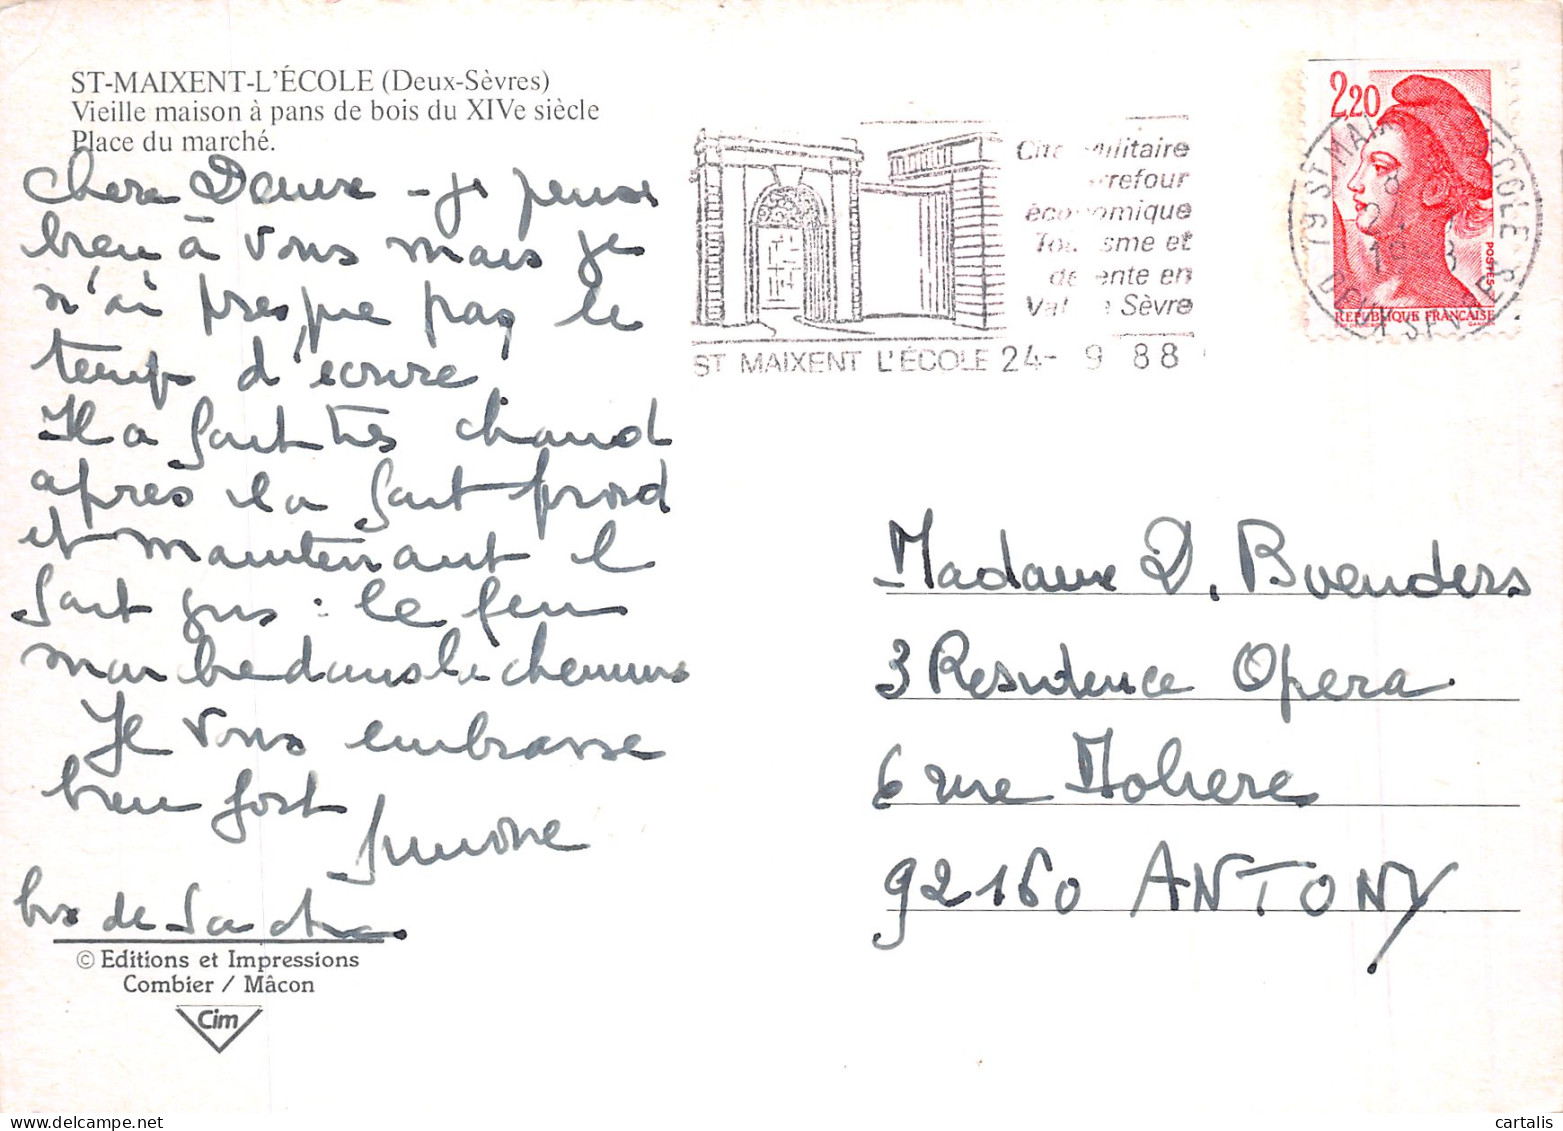 ST-MAIXENT-L'ÉCOLE (Deux-Sèvres)
Vieille maison à pans de bois du XIVe siècle
Place du marché.
Chere Danse - je pense
bien à vous mais je
n'ai presque pas le
temps d'ecrire
Il a fait très chaud
après il a fait froid
et maintenant il
fait gris : le feu
marche dans la cheminee
Je vous embrasse
bien fort
Simone
de
© Editions et Impressions
Combier / Mâcon
Cim
militaire
économique
Tourisme et
détente en
Val Sèvre
ST MAIXENT L'ÉCOLE 24- 9 88
2,20
POSTES
REPUBLIQUE FRANÇAISE
79 ST MAIXENT L'ECOLE
DEUX SEVRES
Madame D. Boenders
3 Residence Opera
6 rue Moliere
92160 ANTONY
cartalis